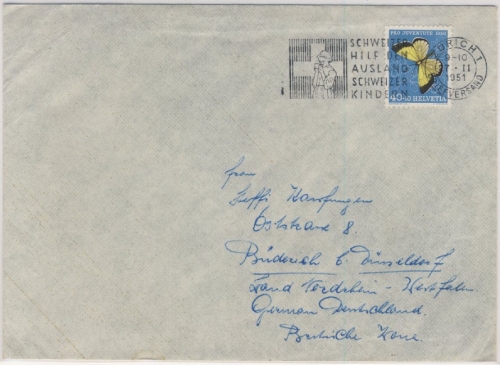 SCHWEIZER
HILF DEN
AUSLAND
SCHWEIZER
KINDERN
PRO JUVENTUTE 1950
40+10 HELVETIA
ZÜRICH 1
9-10
7.-II
1951
BRIEFVERSAND
Frau
Steffi
Oststrasse 8.
Büderich b. Düsseldorf
Land Nordrhein-Westfalen
German Deutschland.
Britische Zone.